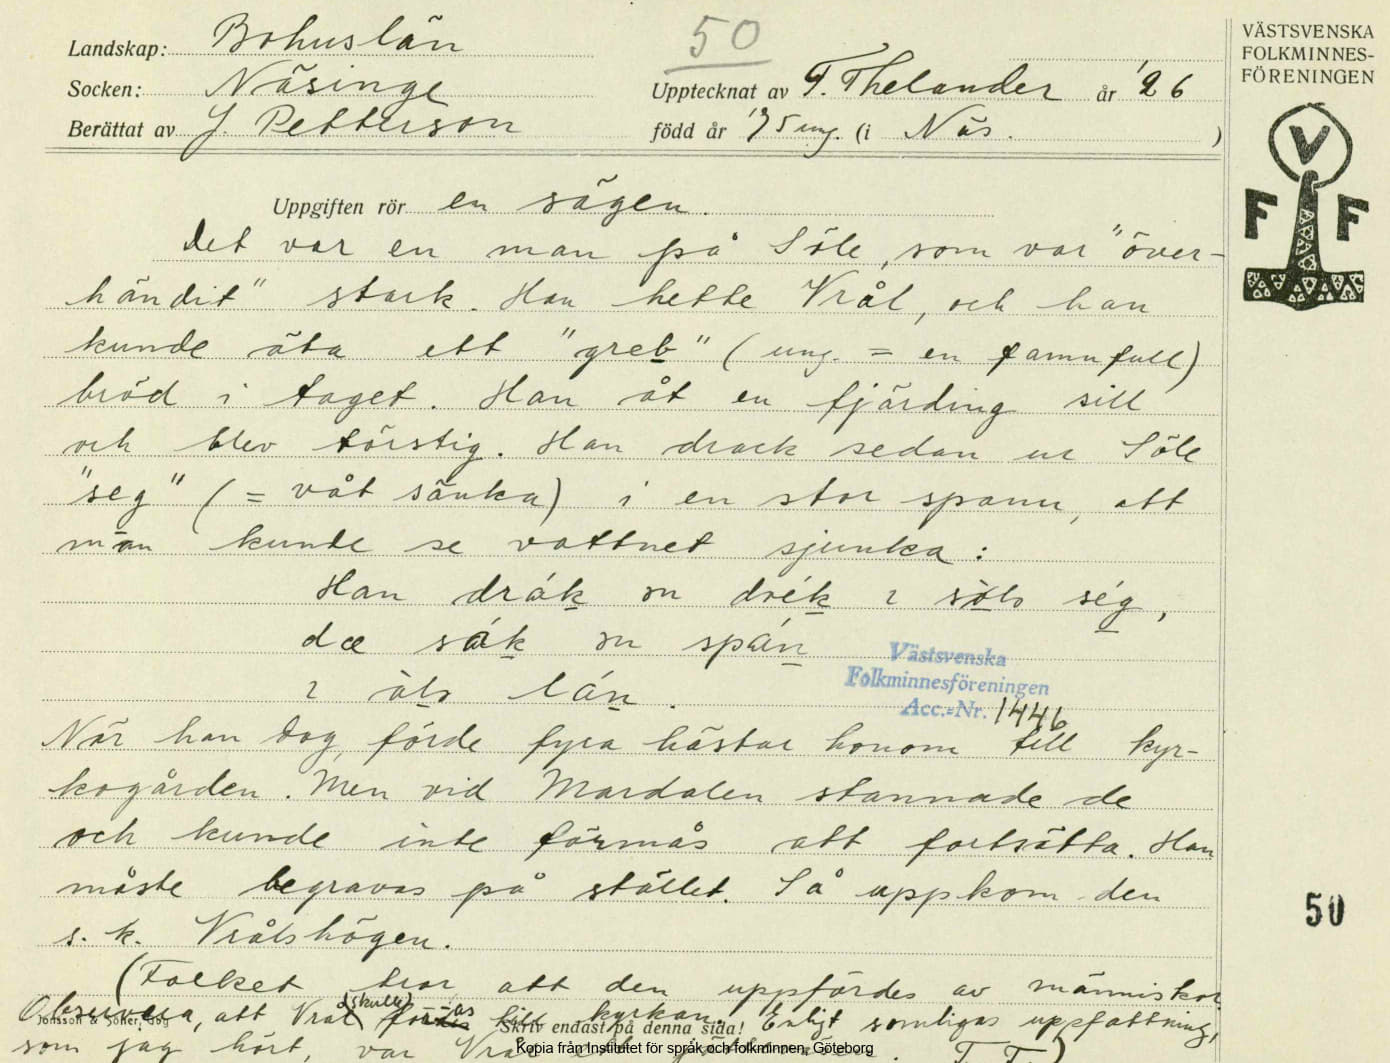 50
VÄSTSVENSKA
FOLKMINNES-
FÖRENINGEN
Landskap: Bohuslän
Socken: Näsinge Upptecknat av F. Thelander år '26
Berättat av J. Petterson född år '75 ung. (i Näs. )
V
F F
Uppgiften rör en sägen.
Det var en man på Söle, som var "över-
händit" stark. Han hette Vrål, och han
kunde äta ett "greb" (ung. = en famnfull)
bröd i taget. Han åt en fjärding sill
och blev törstig. Han drack sedan ur Söle
"seg" (= våt sänka) i en stor spann, att
man kunde se vattnet sjunka:
Han drák en drék i söls ség,
dæ sák en spán
i áls lán.
Västsvenska
Folkminnesföreningen
Acc.-Nr. 1446
När han dog, förde fyra hästar honom till kyr-
kogården. Men vid Mardalen stannade de
och kunde inte förmås att fortsätta. Han
måste begravas på stället. Så uppkom den
s.k. Vrålshögen.
50
(Folket tror att den uppfördes av människor.
Observera, att Vrål (skulle) föras till kyrkan. Enligt somligas uppfattning,
Jonsson & Söner, Gbg
Skriv endast på denna sida!
som jag hört, var Vrål F. T.)
Kopia från Institutet för språk och folkminnen, Göteborg